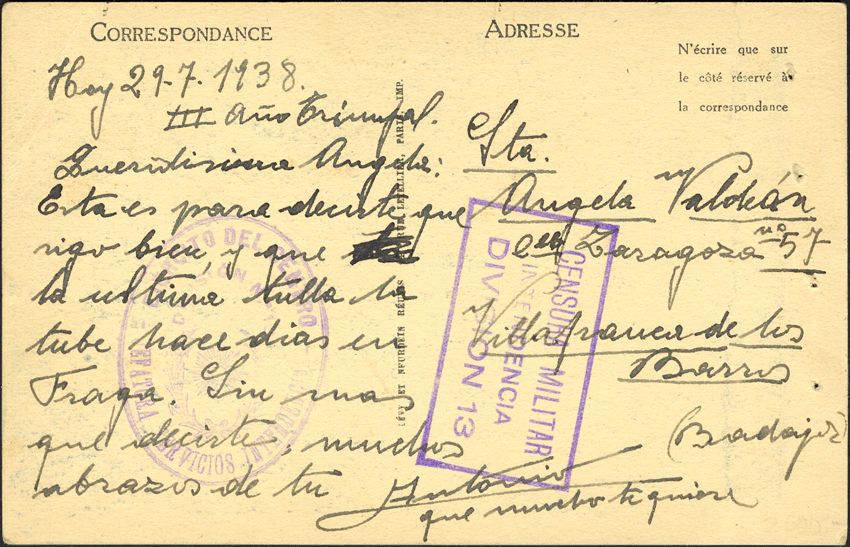 CORRESPONDANCE
ADRESSE
N'écrire que sur
le côté réservé à
la correspondance
Hoy 29-7-1938.
III Año Triunfal.
Queridisima Angela:
Esta es para decirte que
sigo bien, y que
la ultima tulla la
tube hace dias en
Fraga. Sin mas
que decirte, muchos
abrazos de tu Antonio
que mucho te quiere
Sta.
Angela
Zaragoza nº 57
Villafranca de los
Barros
(Badajoz)
CENSURA MILITAR
INTENDENCIA
DIVISION 13
DEL CENTRO
SERVICIOS
LÉVY ET NEURDEIN RÉUNIS
LETELLIER, PARIS, IMP.